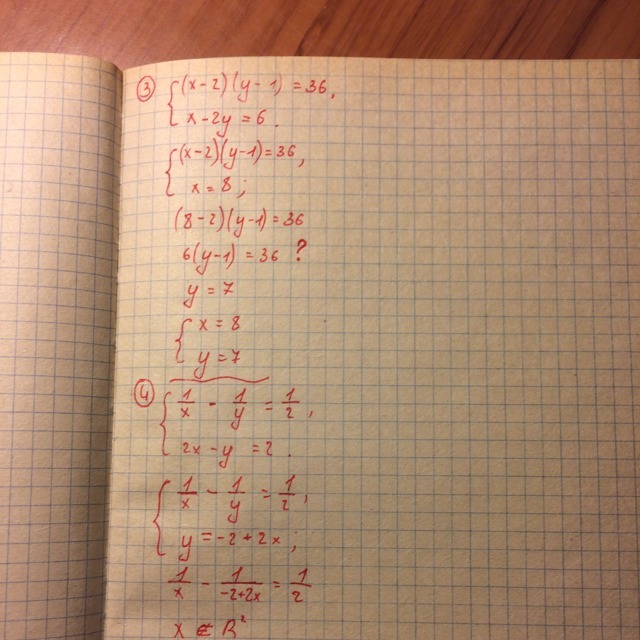 ③ { (x-2)(y-1) = 36,
x-2y = 6.
{ (x-2)(y-1) = 36,
x = 8;
(8-2)(y-1) = 36
6(y-1) = 36 ?
y = 7
{ x = 8
y = 7
④ { 1/x - 1/y = 1/2,
2x-y = 2.
{ 1/x - 1/y = 1/2,
y = -2+2x;
1/x - 1/(-2+2x) = 1/2
x ∉ R